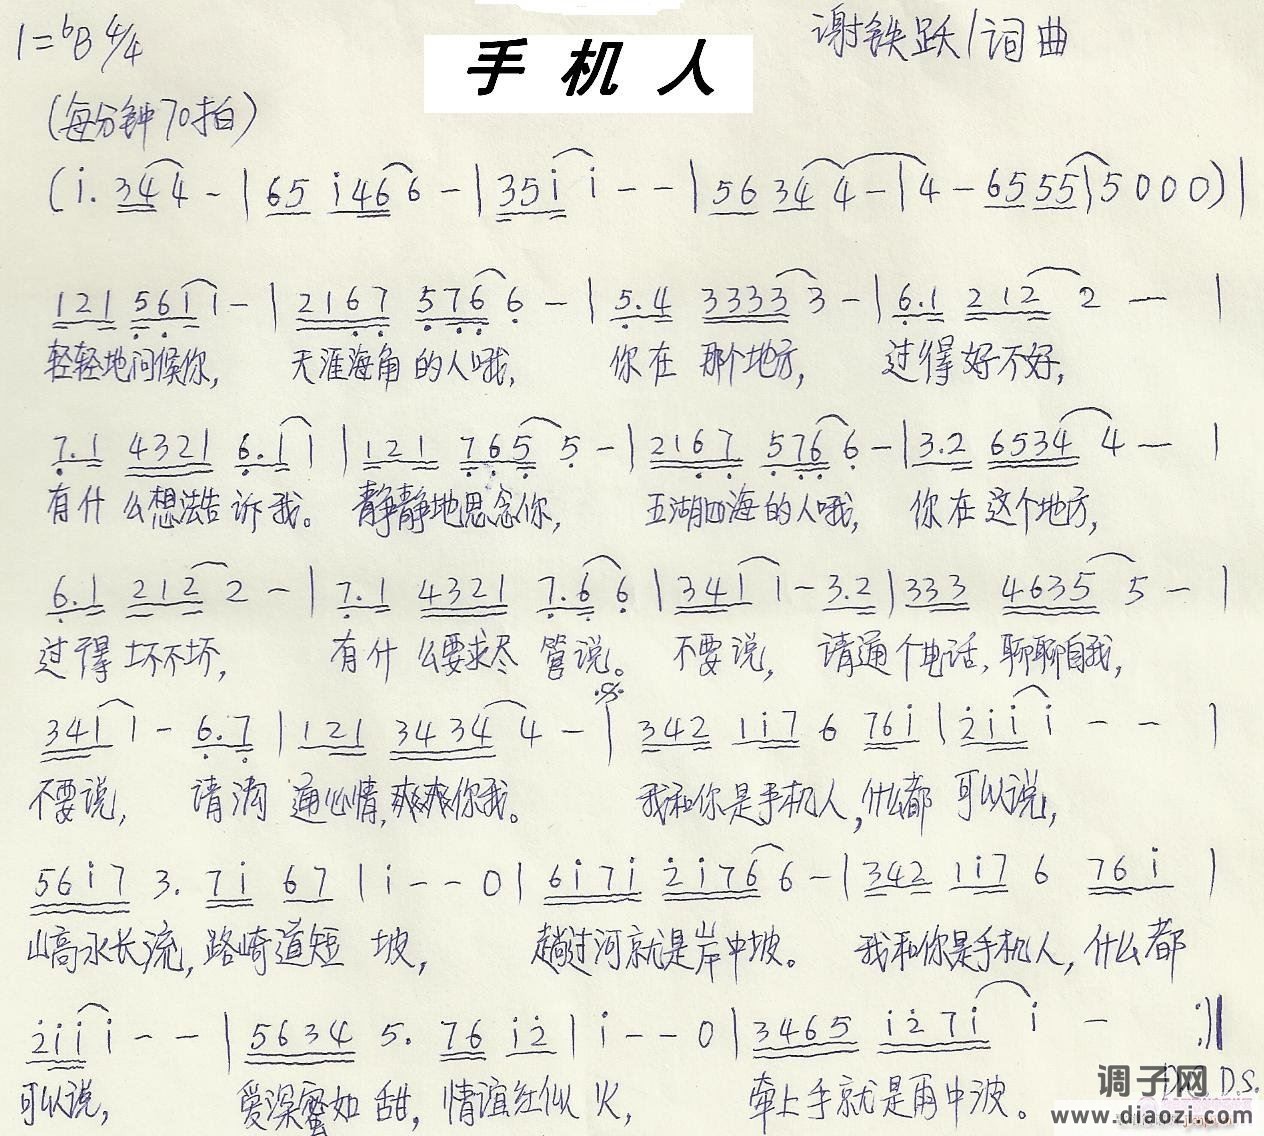 1=♭B 4/4
手机人
谢铁跃/词曲
(每分钟70拍)
(i. 344 - | 65 i466 - | 35i i - - | 56 34 4 - | 4 - 65 55 | 5 0 0 0) |
121 561 1 - | 2167 576 6 - | 5.4 3333 3 - | 6.1 212 2 - |
轻轻地问候你, 天涯海角的人哦, 你在那个地方, 过得好不好,
7.1 4321 6.1 1 | 121 765 5 - | 2167 576 6 - | 3.2 6534 4 - |
有什么想法告诉我。 静静地思念你, 五湖四海的人哦, 你在这个地方,
6.1 212 2 - | 7.1 4321 7.6 6 | 341 1 - 3.2 | 333 4635 5 - |
过得坏不坏, 有什么要求尽管说。 不要说, 请通个电话, 聊聊自我,
341 1 - 6.7 | 121 3434 4 - | 342 1i7 6 76i | 2ii i - - |
不要说, 请沟通心情,爽爽你我。 我和你是手机人,什么都可以说,
56i7 3. 7i 67 | i - - 0 | 6i7i 2i76 6 - | 342 1i7 6 76i |
山高水长流,路崎道短坡, 趟过河就是岸中坡。 我和你是手机人,什么都
2ii i - - | 5634 5. 76 i2 | i - - 0 | 3465 i27i i - :||
可以说, 爱深蜜如甜, 情谊红似火, 牵上手就是雨中波。 D.S.
调子网
www.diaozi.com